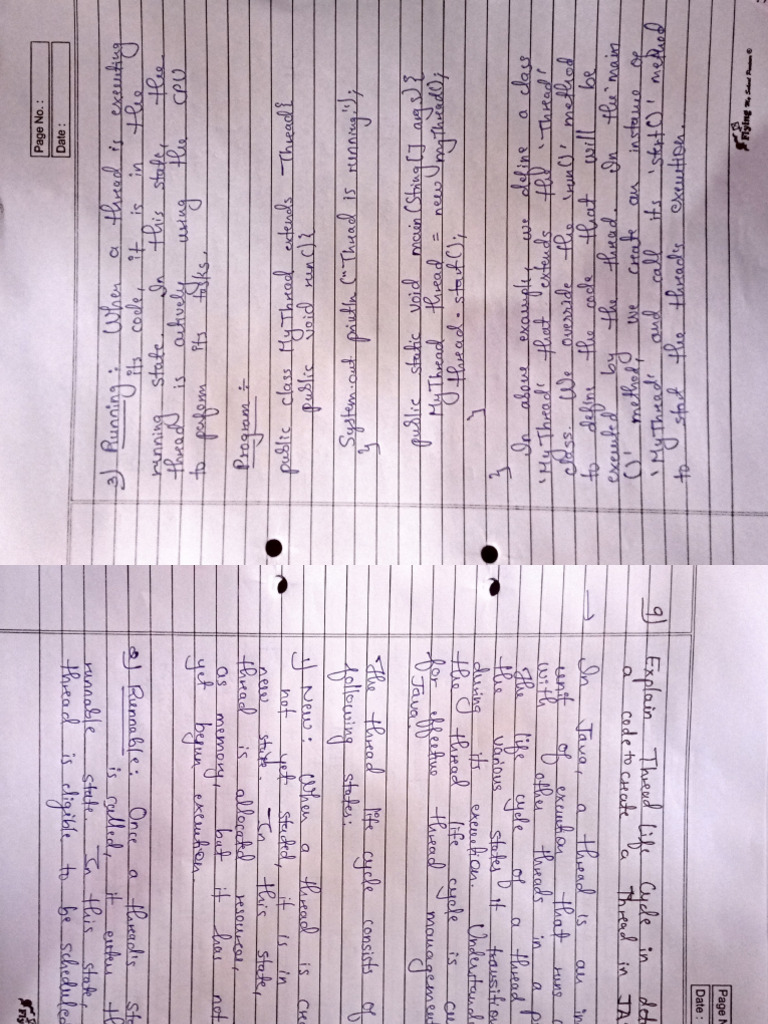 9) Explain Thread Life Cycle in det
a code to create a Thread in JA
→ In Java, a thread is an in
unit of execution that runs c
with other threads in a p
The life cycle of a thread
the various states it transition
during its execution. Understand
the thread life cycle is cu
for effective thread management
Java.
The thread life cycle consists of
following states:
1) New: When a thread is cre
not yet started, it is in
new state. In this state,
thread is allocated resources,
as memory, but it has not
yet begun execution.
2) Runnable: Once a thread's sta
is called, it enters th
runnable state. In this state,
thread is eligible to be scheduled
Page N
Date :
Page No. :
Date :
3) Running: When a thread is executing
its code, it is in the
running state. In this state, the
thread is actively using the CPU
to perform its tasks.
Program ÷
public class MyThread extends Thread{
public void run(){
System.out.println ("Thread is running");
}
public static void main (String [] args){
MyThread thread = new myThread();
thread.start();
}
}
In above example, we define a class
'MyThread' that extends the 'Thread'
class. We override the 'run()' method
to define the code that will be
executed by the thread. In the 'main
()' method, we create an instance of
'MyThread' and call its 'start()' method
to start the thread's execution.
Flying